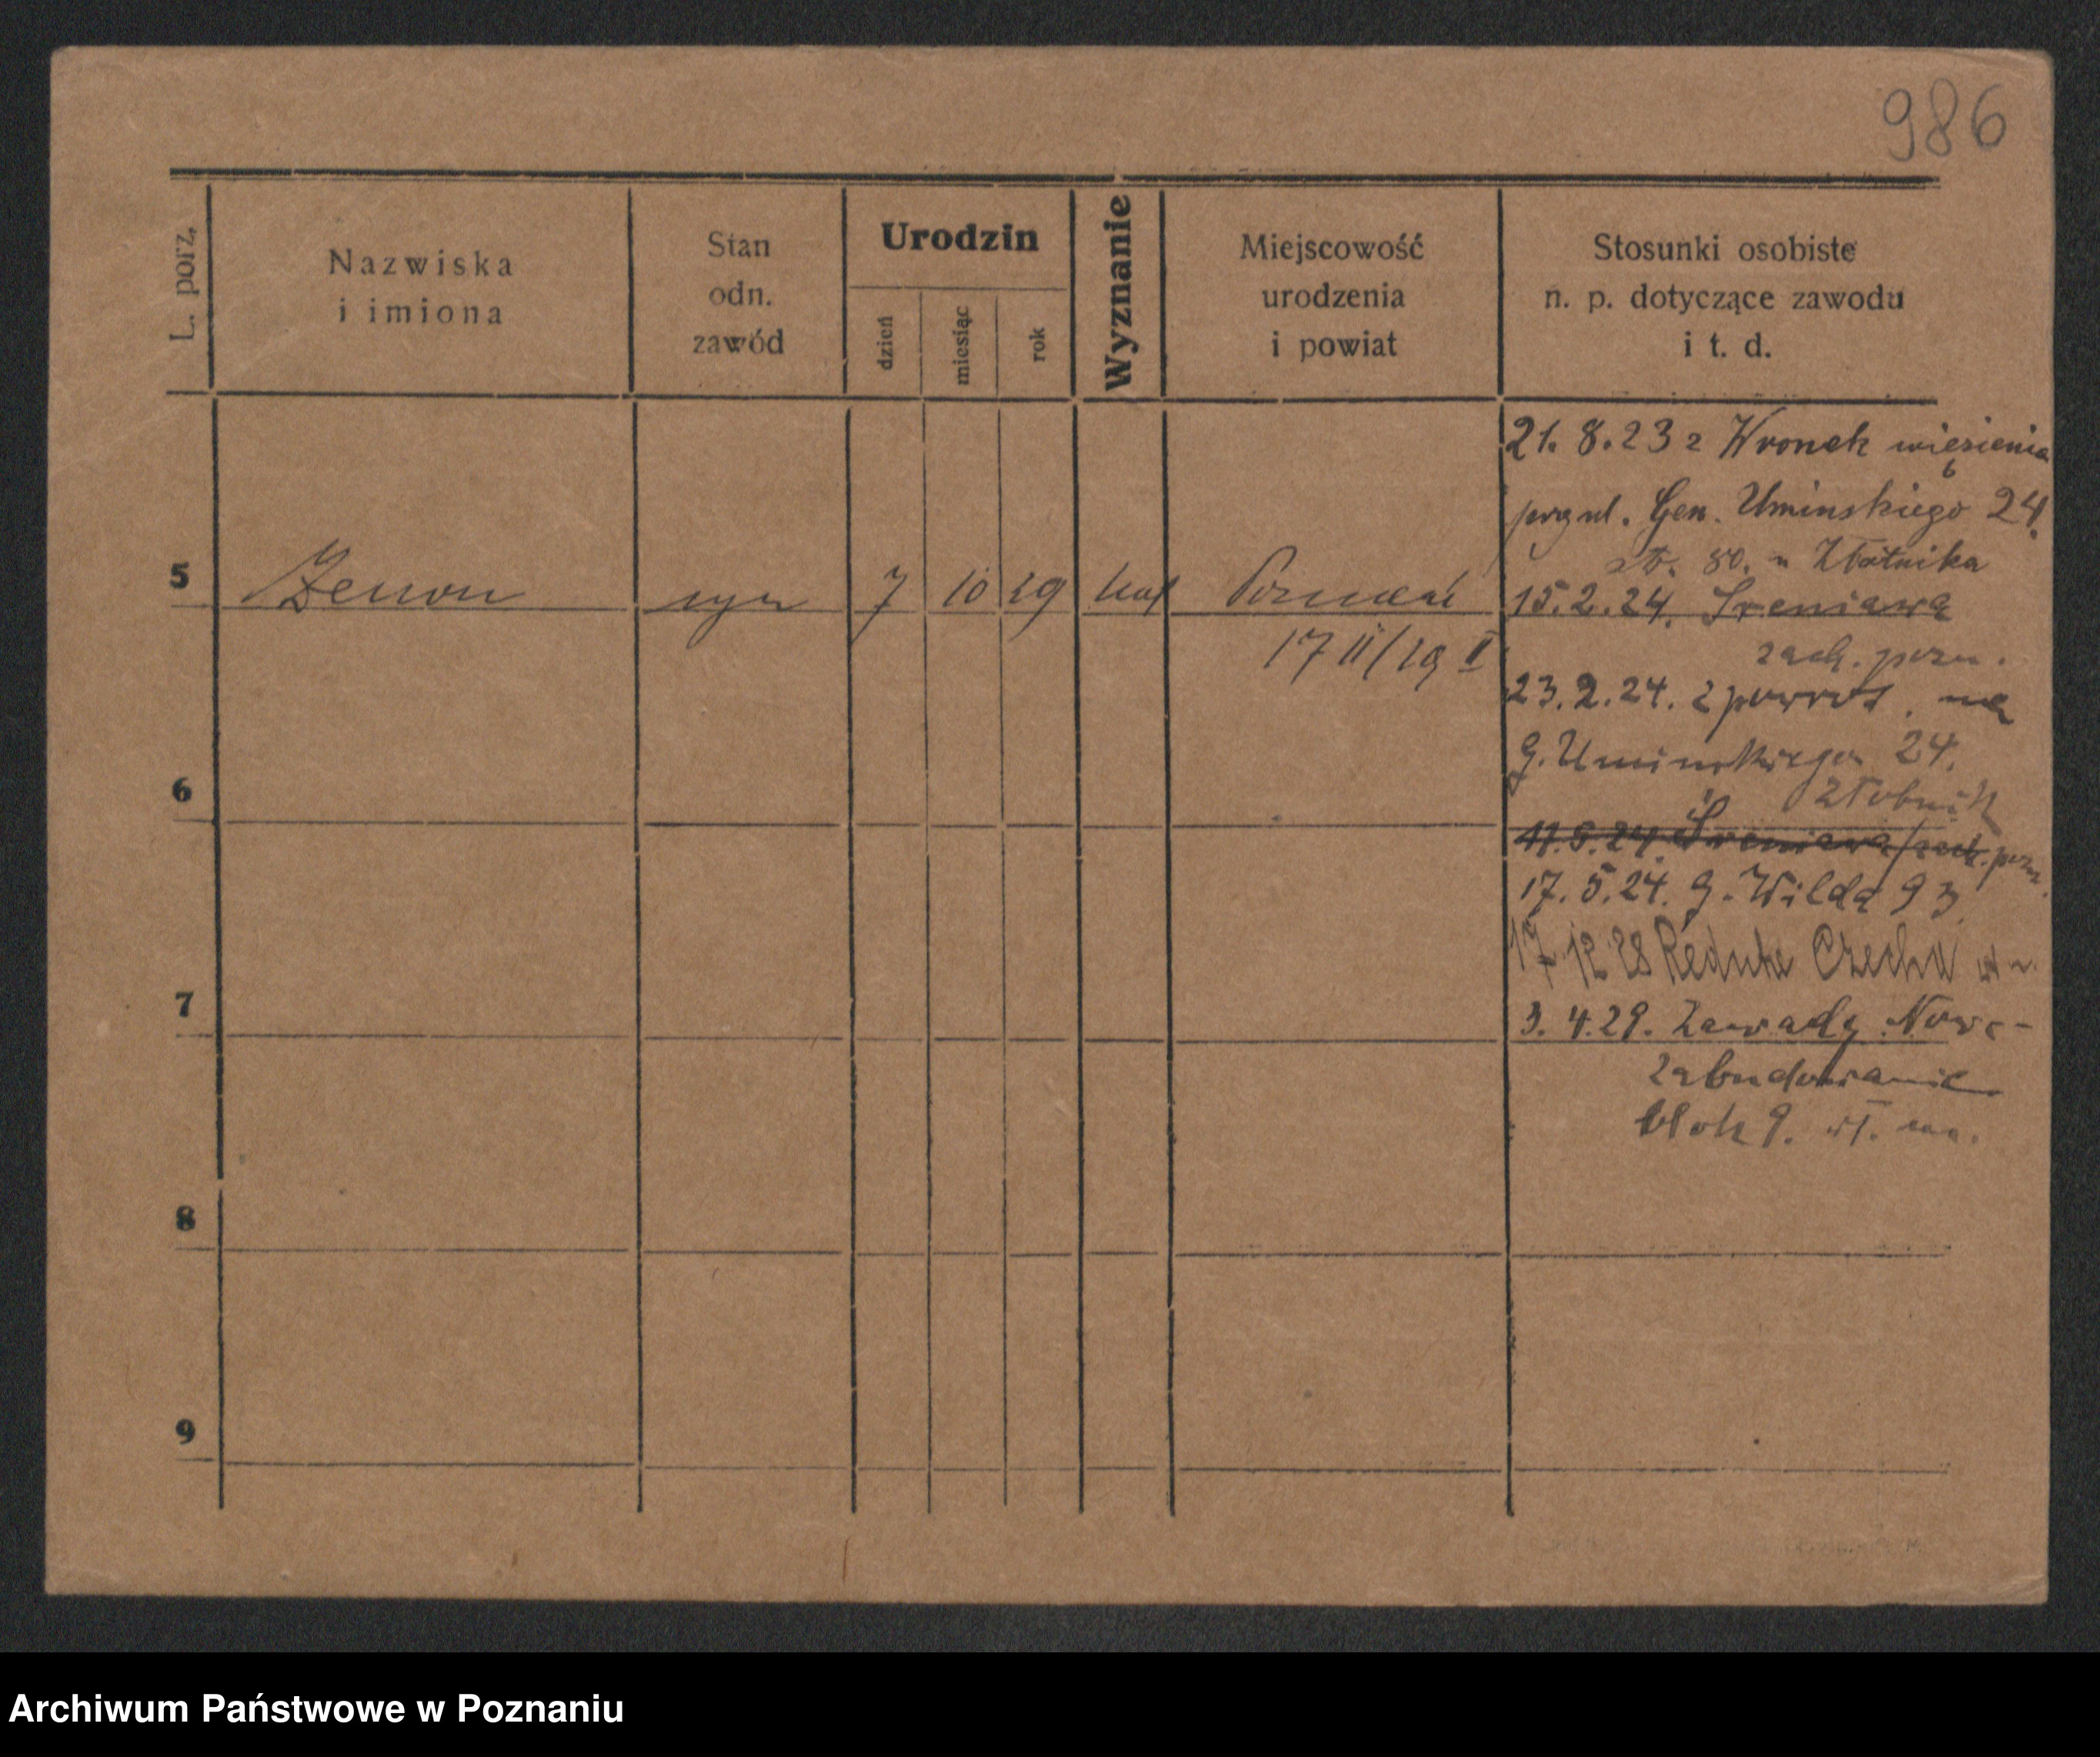 986
L. porz.
Nazwiska
i imiona
Stan
odn.
zawód
Urodzin
dzień
miesiąc
rok
Wyznanie
Miejscowość
urodzenia
i powiat
Stosunki osobiste
n. p. dotyczące zawodu
i t. d.
5
Zenon
syn
7
10
29
kat
Poznań
17 II/29 I
6
7
8
9
21.8.23 z Wronek więzienia
przy ul. Gen. Uminskiego 24.
80. u
15.2.24. Sreniawa
zach. pozn.
23.2.24. z powrot. na
G. Uminskiego 24.
11.5.24. Sreniawa/zach. pozn.
17.5.24. G. Wilda 93
17 12 28 Reduta Czecha
3.4.29. Zawady Nowe-
zabudowanie
blok 9. wł.
Archiwum Państwowe w Poznaniu